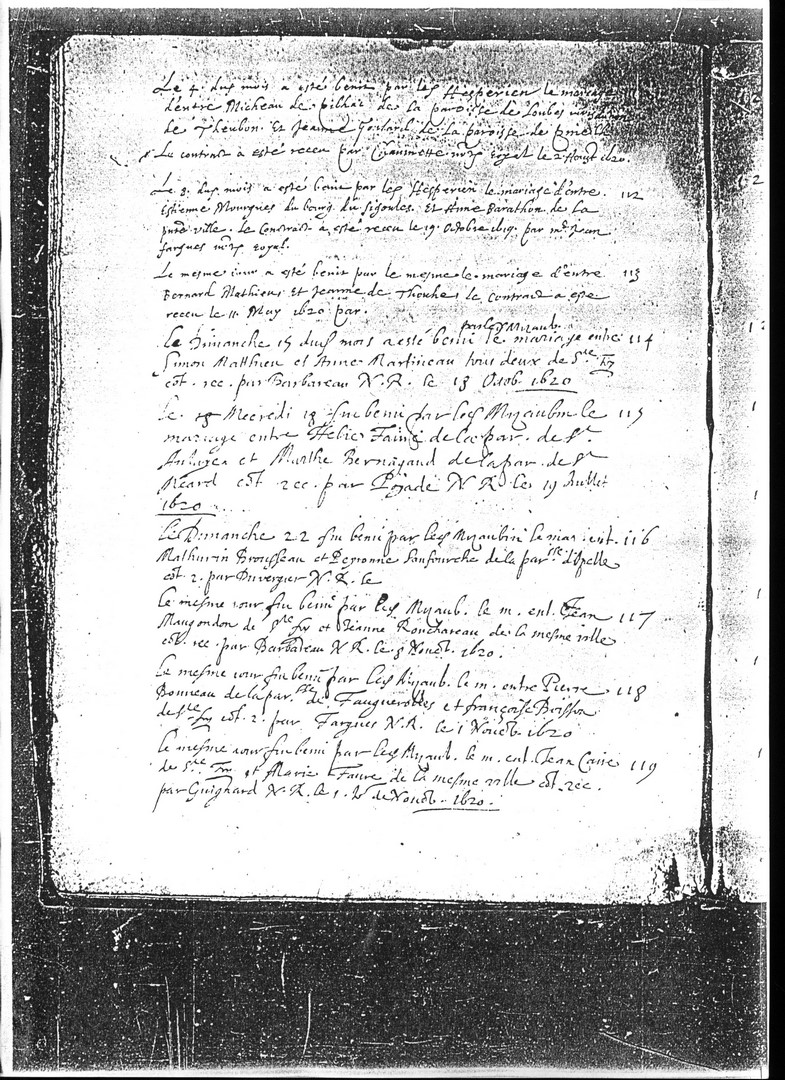 Le 4. dud mois a esté benit par led Hesperien le mariage
d'entre Micheau de pilhai de la paroisse de Loubes
de Theubon. Et Jeanne de la paroisse de
Le contract a esté receu par Chaumette no.re royal le 2 Aoust 1620.
Le 8. dud mois a esté benit par led Hesperien le mariage d'entre 112
Estienne Mourgues du bourg du Sigoules. Et Anne Barathon de la
pnte ville. Le Contract a esté receu le 19. Octobre 1619. par me Jean
fargues no.re royal.
Le mesme iour a esté benit par le mesme le mariage d'entre 113
Bernard Mathieu Et Jeanne de Thouhe, le contract a este
receu le 11. May 1620 par.
le Dimanche 15 dud mois a esté beni par led Myaub. le mariage entre 114
Simon Matthieu et Anne Martineau tous deux de Ste Fy
cot. rec. par Barbareau N. R. le 13 Octob. 1620
Le Mecredi 18 fu beni par led Myaubin le 115
mariage entre Helie Faure de la par. de St
et Marthe Bernagaud de la par. de St
Meard cot. rec. par Pojade N R. le 19 Juillet
1620
Le Dimanche 22 fu beni par led Myaubin le mar. ent. 116
Mathurin Brousseau et Peyronne Sanfourche de la par.sse
cot. 2. par Duvergier N. R. le
le mesme iour fu beni par led Myaub. le m. ent. Jean 117
Maugondon de Ste Fy et Jeanne Rouchareau de la mesme ville
cot. rec. par Barbareau N R. le 8 Noueb. 1620.
Le mesme iour fu beni par led Myaub. le m. entre Pierre 118
Bonneau de la par.sse de Fauguerolles et françoise Boisson
de Ste Fy cot. 2. par Fargues N. R. le 1 Noueb. 1620
le mesme iour fu beni par led Myaub. le m. ent. Jean Caire 119
de Ste Fy et Marie Faure de la mesme ville cot. rec.
par Guignard N. R. le 1. de Noueb. 1620.